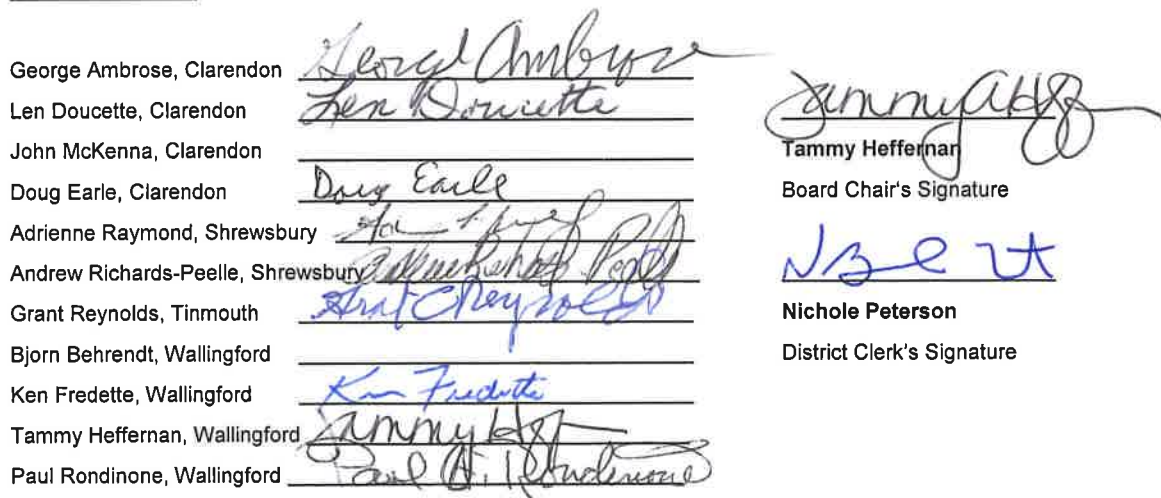 George Ambrose, Clarendon George Ambrose
Len Doucette, Clarendon Len Doucette
John McKenna, Clarendon
Doug Earle, Clarendon Doug Earle
Adrienne Raymond, Shrewsbury
Andrew Richards-Peelle, Shrewsbury
Grant Reynolds, Tinmouth Grant C Reynolds
Bjorn Behrendt, Wallingford
Ken Fredette, Wallingford Ken Fredette
Tammy Heffernan, Wallingford Tammy
Paul Rondinone, Wallingford Paul A. Rondinone
Tammy
Tammy Heffernan
Board Chair's Signature
Nichole Peterson
District Clerk's Signature